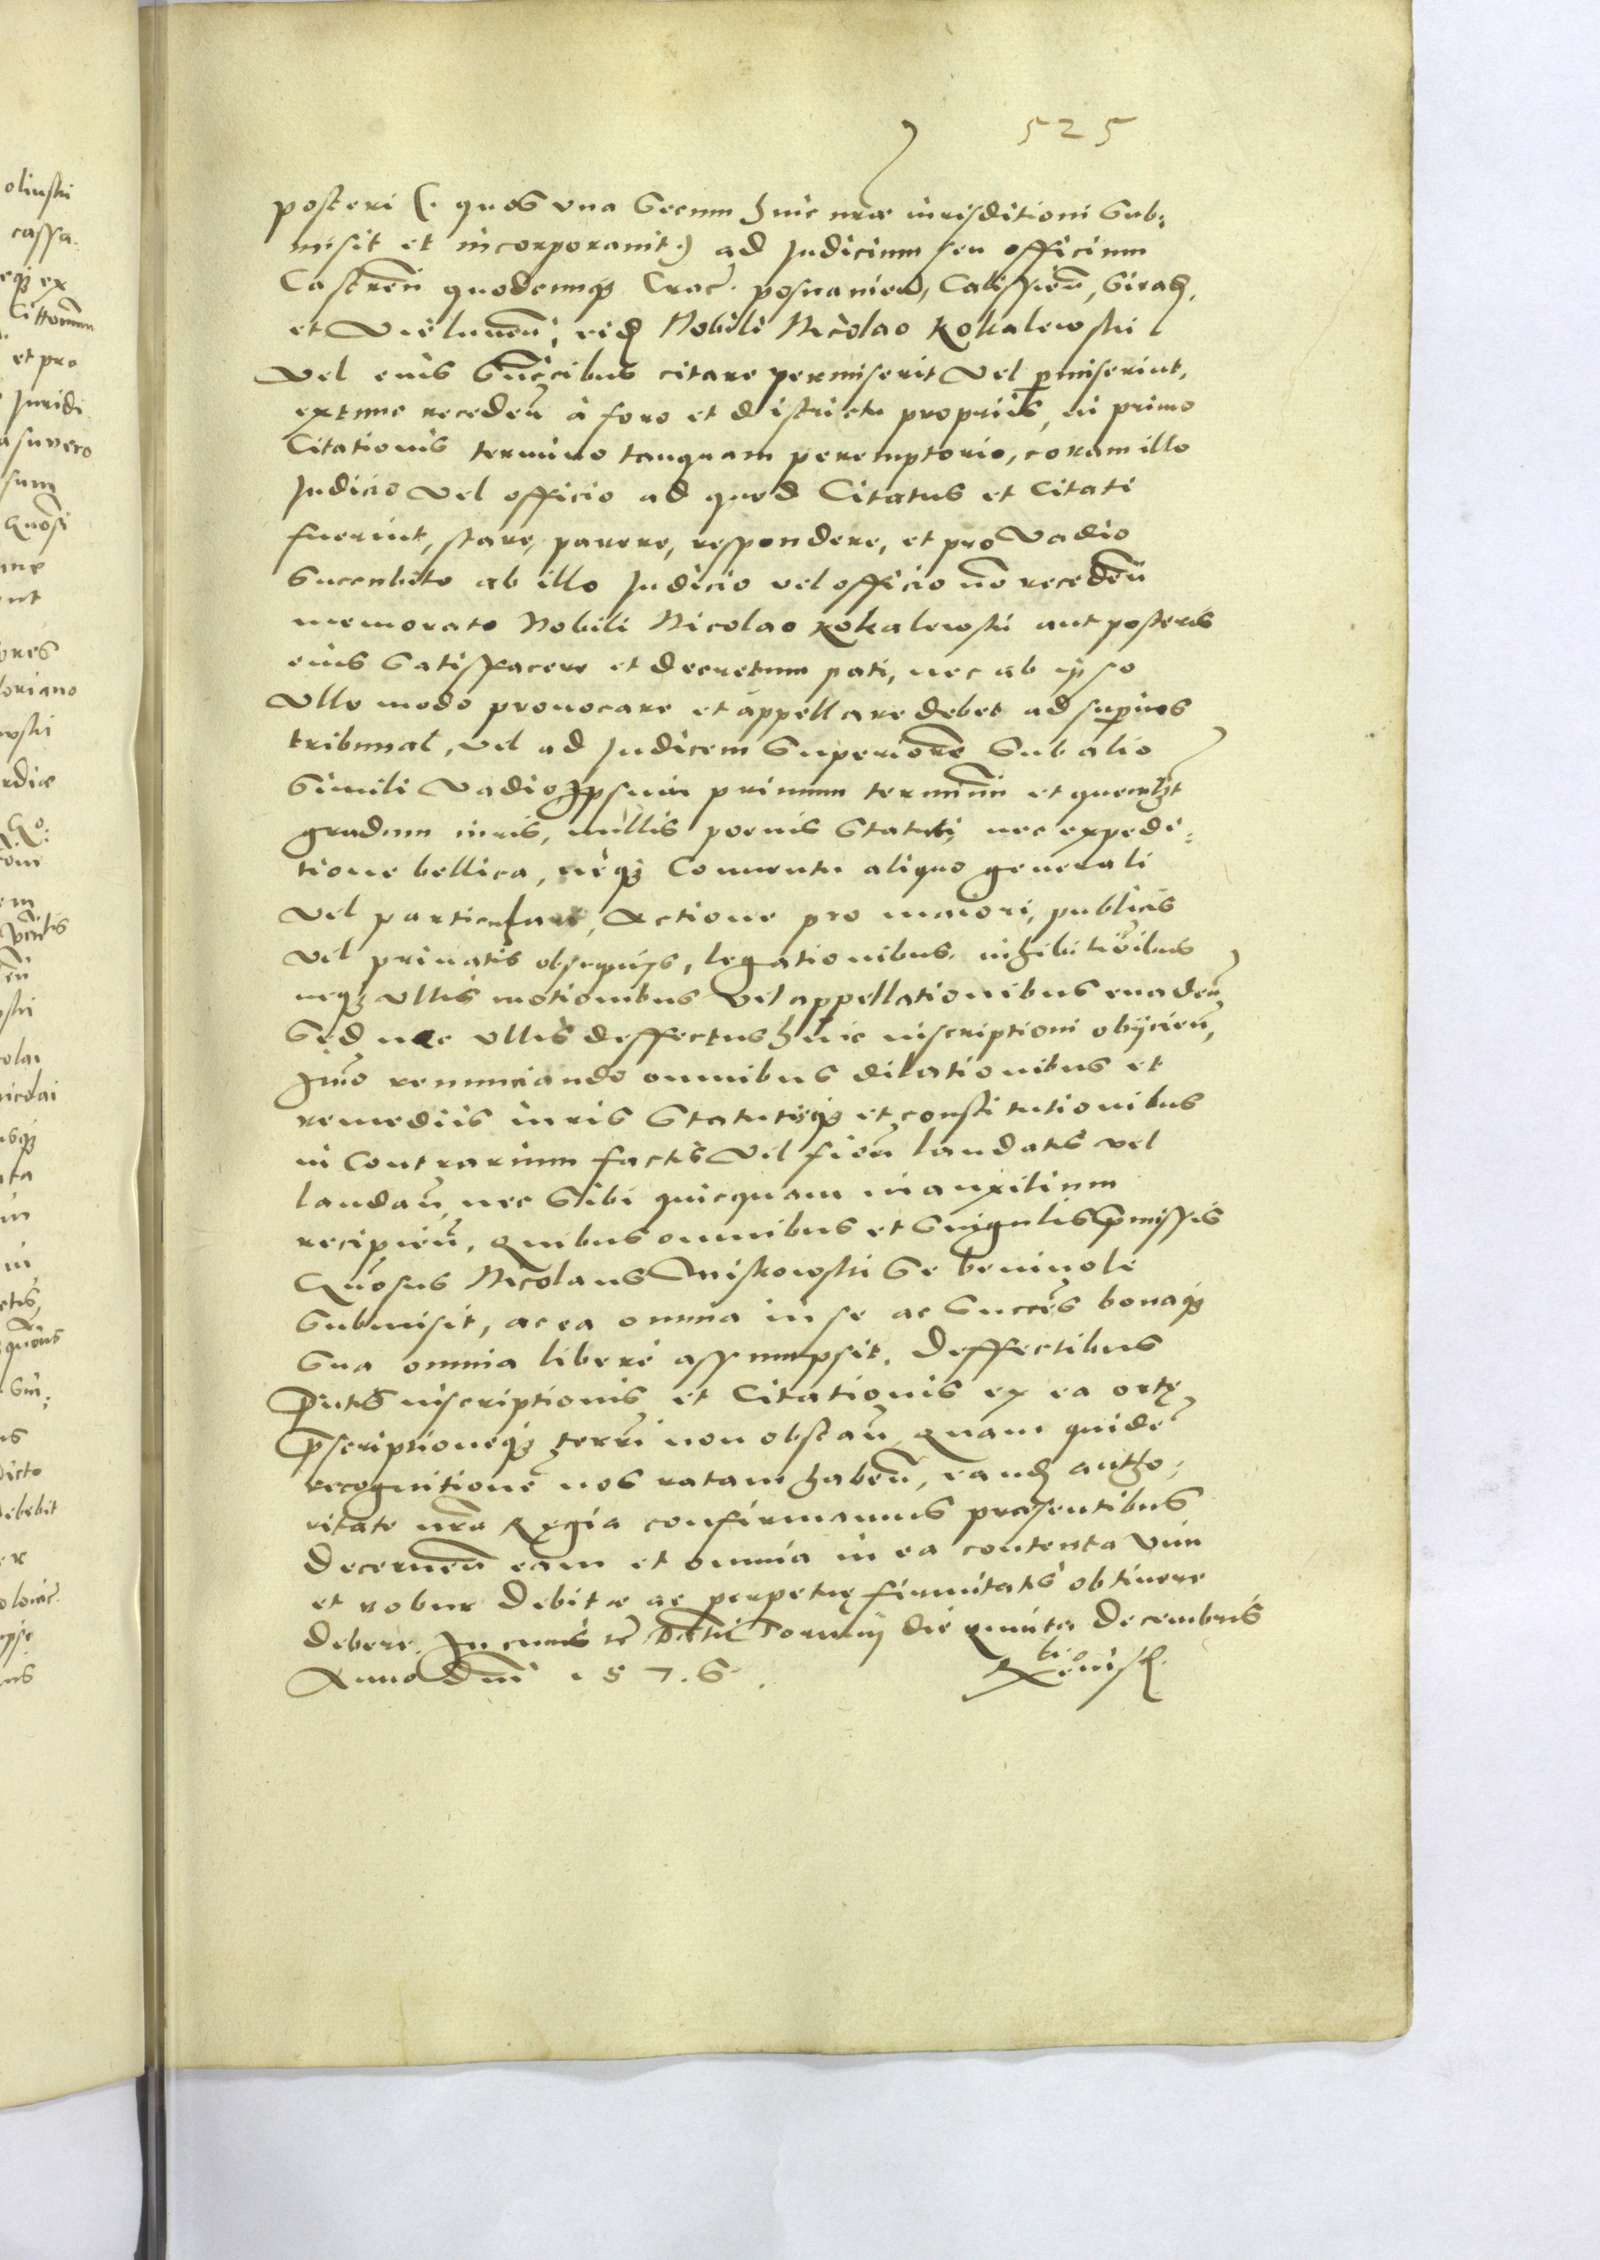 525
posteri (. quos vna secum huic nræ iurisditioni sub:
misit et incorporauit .) ad Judicium seu officium
Castren̄ quodcunq3 Crac. posnanien̄, Calissien̄, Sirad.
et Vielunen̄, eid Nobili Nicolao Kokalewski
vel eius succ̄ibus citare permiserit vel p̄miserint,
extunc receden̄ à foro et districtu proprijs, in primo
Citationis termino tanquam peremptorio, coram illo
Judicio vel officio ad quod Citatus et Citati
fuerint, stare, parere, respondere, et pro vadio
succubito ab illo Judicio vel officio no͞ receden̄
memorato Nobili Nicolao Kokalewski aut posteris
eius satisfacere et decretum pati, nec ab ipso
vllo modo prouocare et appellare debet ad sup̄ius
tribunal, vel ad Judicem superiore͞ sub alio
simili vadio Ipsum primum terminu͞ et quemlꝫt
gradum iuris, nullis poenis statuti, nec expedi:
tione bellica, neq3 Conuentu aliquo generali
vel particulari, Actione pro maiori, publicis
vel priuatis obsequijs, legationibus, inhibitio͞ibus
neq3 vllis motionibus vel appellationibus euaden̄
sed nec vllis deffectus huic inscriptioni obijcien̄,
Imo renunciando omnibus dilationibus et
remediis iuris statutisq3 et constitutionibus
in contrarium factis vel fien̄ laudatis vel
laudan̄, nec sibi quicquam in auxilium
recipien̄, quibus omnibus et singulis p̄missis
G͞nosus Nicolaus se beniuole
submisit, ac ea omnia in se ac succ̄es bonaq3
sua omnia liberè assumpsit. Deffectibus
p̄ntis inscriptionis et Citationis ex ea ortę
p̄scriptioneq3 terr̄i non obstan̄ Quam quide͞
recognitione͞ nos ratam haben̄, eand autho:
ritate nr͞a Regia confirmamus præsentibus
decernen̄ eam et omnia in ea contenta vim
et robur debitæ ac perpetuę firmitatis obtinere
debere. In cuius re͞ Datu͞ Torunij die quinta decembris
Anno Dn͞i 1576.